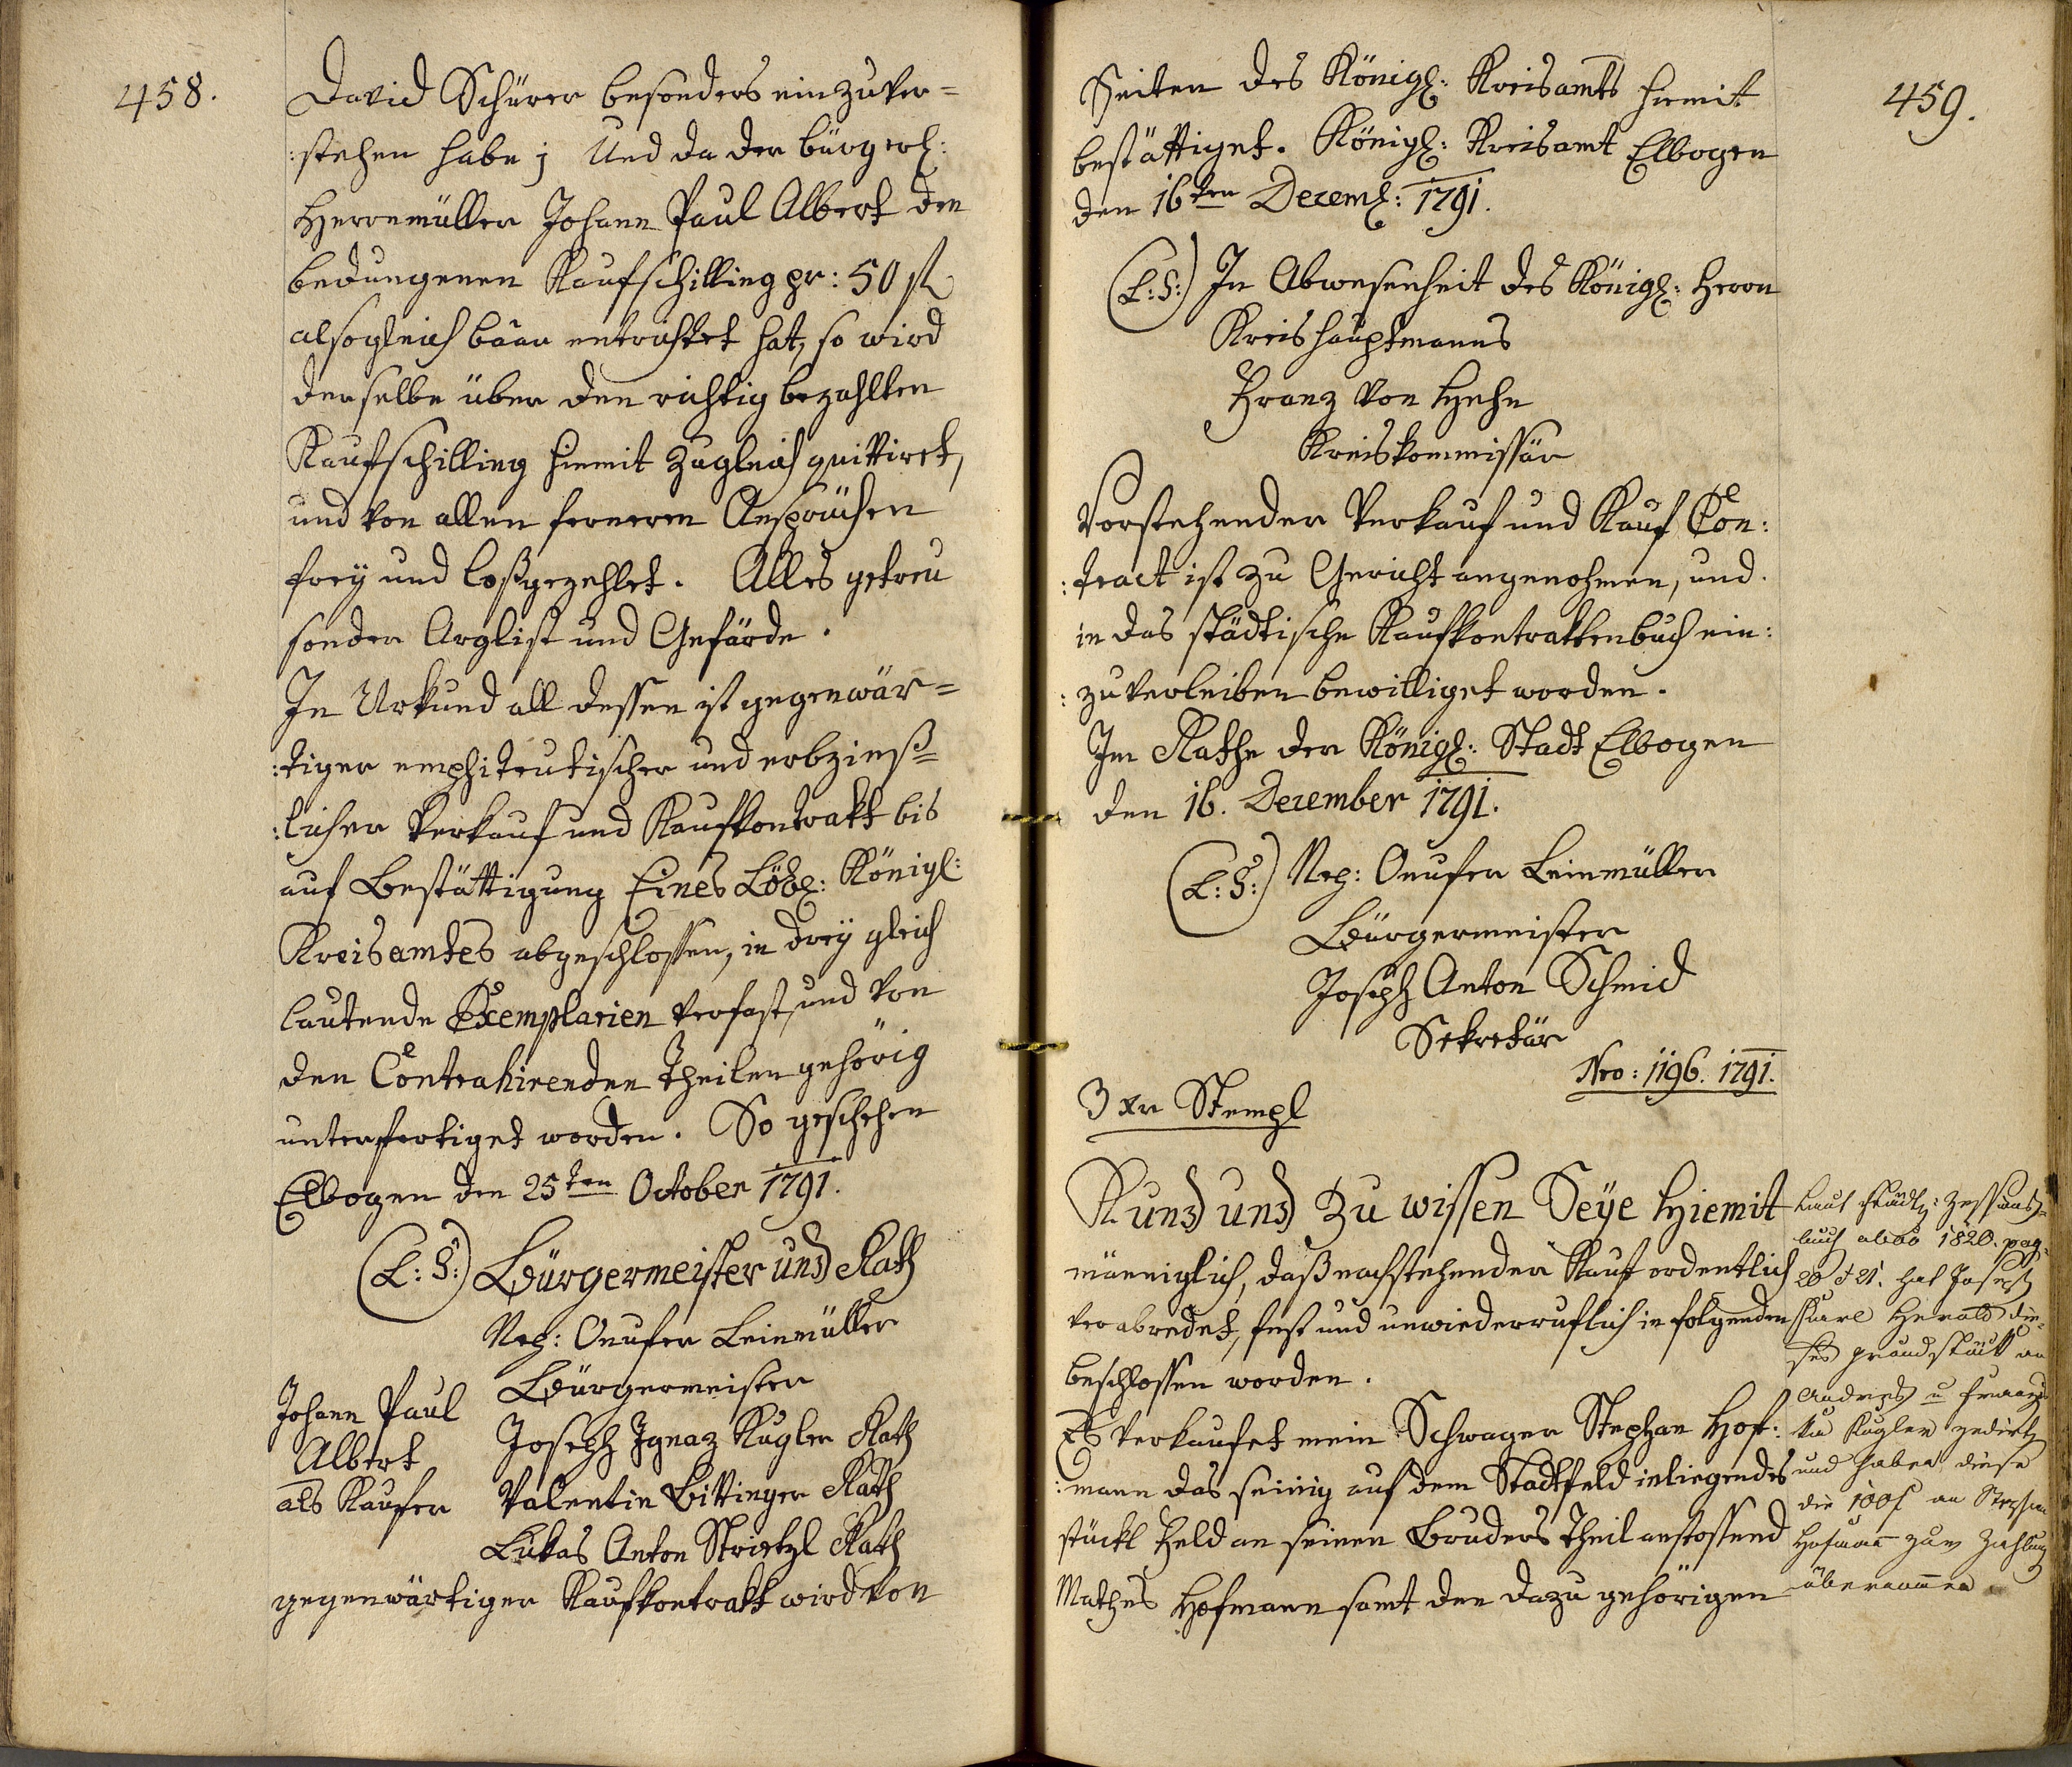 458.
David Schürer besonders einzuver=
:stehen habe; Und da der bürgerl:
Herrnmüller Johann Paul Albert den
bedungenen Kaufschilling pr: 50 fl
alsogleich baar entrichtet hat, so wird
derselbe über den richtig bezahlten
Kaufschilling hiemit zugleich quittiret,
und von allen ferneren Ansprüchen
frey und loßgezehlet. Alles getreu
sonder Arglist und Gefärde.
In Urkund all dessen ist gegenwär=
:tiger emphiteutischer und erbzinß=
:licher Verkauf und Kaufkontrakt bis
auf Bestättigung Eines Löbl: Königl:
Kreisamtes abgeschlossen, in drey gleich
lautende Exemplarien verfast, und von
den Contrahirenden Theilen gehörig
unterfertiget worden. So geschehen
Elbogen den 25ten October 1791.
(L:S:) Bürgermeister und Rath
Nep: Onufer Leinmüller
Bürgermeister
Johann Paul
Albert
als Kaufer
Joseph Ignaz Kugler Rath
Valentin Bittinger Rath
Lukas Anton Strietzl Rath
gegenwärtiger Kaufkontrakt wird von
459.
Seiten des Königl: Kreisamts hiemit
bestättiget. Königl: Kreisamt Elbogen
den 16ten Decemb: 1791.
(L:S:) In Abwesenheit des Königl: Herrn
Kreishauptmanns
Franz von Hehn
Kreiskommissär
Vorstehender Verkauf und Kauf Con:
:tract ist zu Gericht angenohmen, und
in das städtische Kaufkontraktenbuch ein:
:zuverleiben bewilliget worden.
Im Rathe der Königl: Stadt Elbogen
den 16. December 1791.
(L:S:) Nep: Onufer Leinmüller
Bürgermeister
Joseph Anton Schmid
Sekretär
Nro: 1196. 1791.
3 xr Stempl
Kund und Zu wissen Seye Hiemit
männiglich, daß nachstehender Kauf ordentlich
verabredet, fest und unwiederruflich in folgenden
beschlossen worden.
Es verkaufet mein Schwager Stephan Hof:
:mann das seinig auf dem Stadtfeld inliegendes
stückl Feld an seinen Bruders Theil anstossend
Mathes Hofmann samt den dazu gehörigen
Laut städt: Zessions=
buch 1820. pag:
20 & 21. hat Joseph
Karl Herold die=
ses grundstück an
Andreas u Franzis
ka Kugler zedirt,
und haben diese
die 100f an Stephan
Hofmann zum Zahlung
übernommen